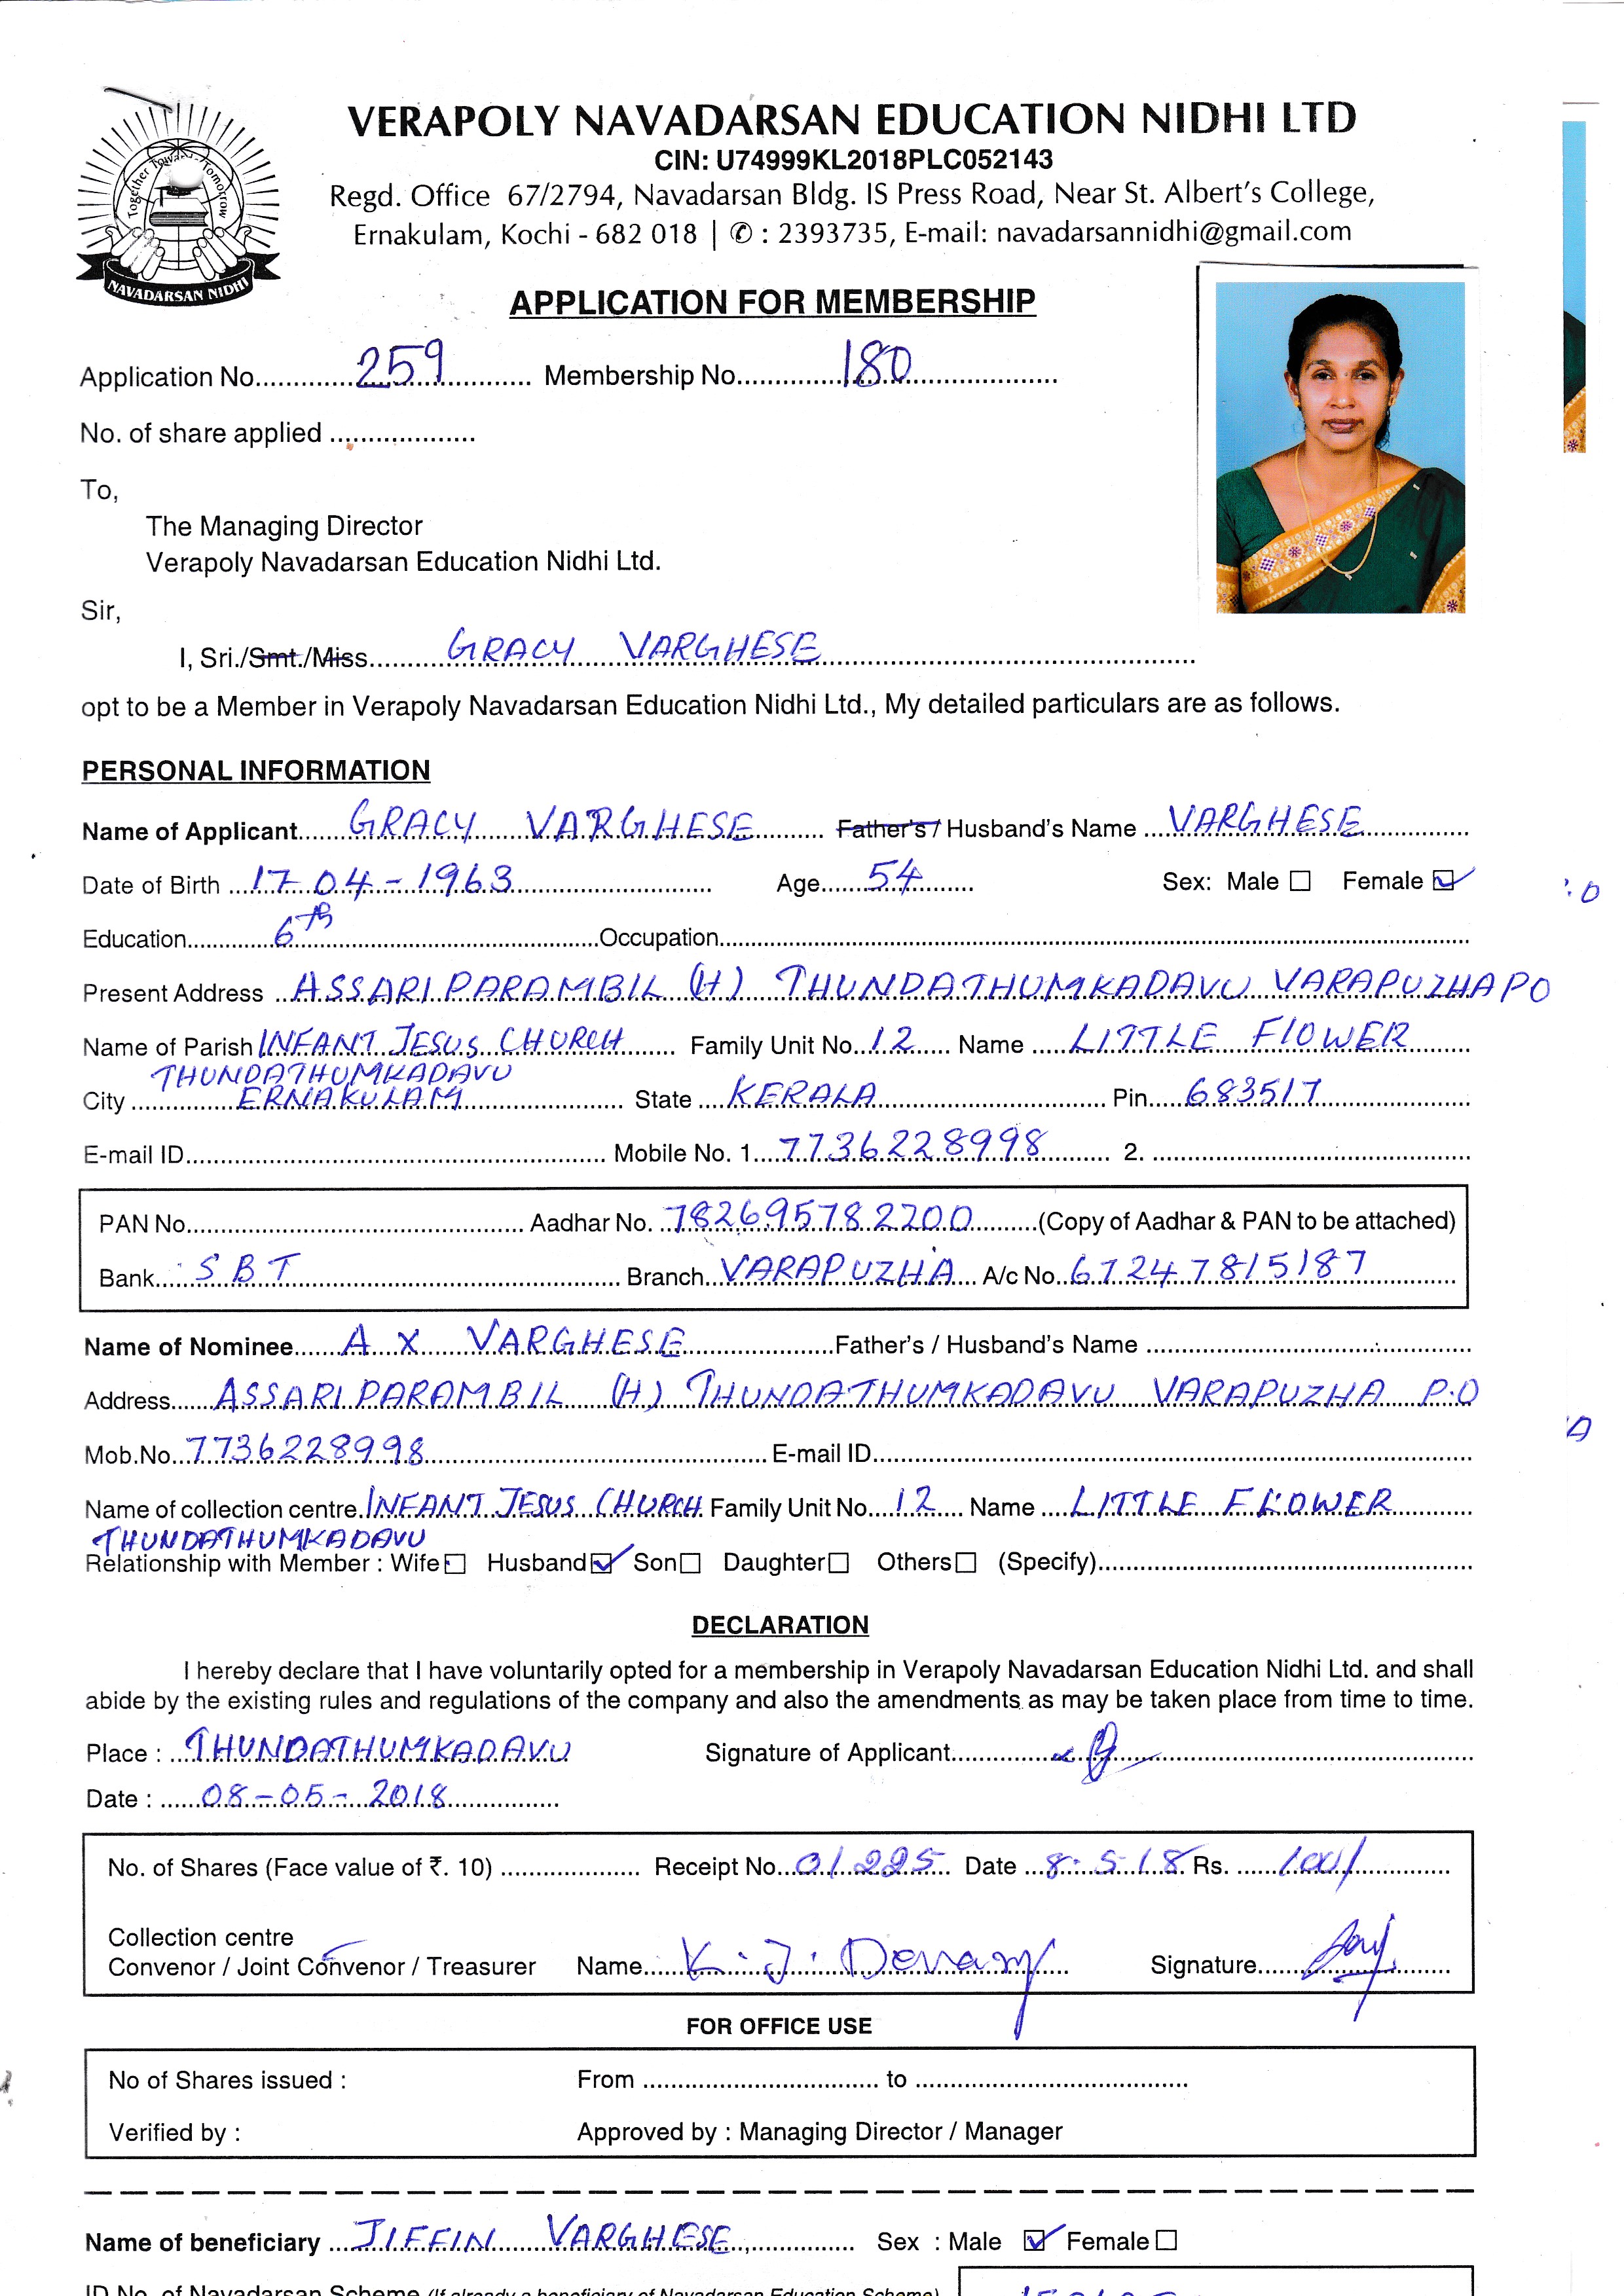 VERAPOLY NAVADARSAN EDUCATION NIDHI LTD
CIN: U74999KL2018PLC052143
Regd. Office 67/2794, Navadarsan Bldg. IS Press Road, Near St. Albert's College,
Ernakulam, Kochi - 682 018 | ✆ : 2393735, E-mail: navadarsannidhi@gmail.com
Together Towards Tomorrow
NAVADARSAN NIDHI
APPLICATION FOR MEMBERSHIP
Application No. 259 Membership No. 180
No. of share applied
To,
The Managing Director
Verapoly Navadarsan Education Nidhi Ltd.
Sir,
I, Sri./Smt./Miss GRACY VARGHESE
opt to be a Member in Verapoly Navadarsan Education Nidhi Ltd., My detailed particulars are as follows.
PERSONAL INFORMATION
Name of Applicant GRACY VARGHESE Father's / Husband's Name VARGHESE
Date of Birth 17 04-1963 Age 54 Sex: Male ☐ Female ☑
Education 6th Occupation
Present Address ASSARIPARAMBIL (H) THUNDATHUMKADAVU VARAPUZHA PO
Name of Parish INFANT JESUS CHURCH Family Unit No. 12 Name LITTLE FlOWER
THUNDATHUMKADAVU
City ERNAKULAM State KERALA Pin 683517
E-mail ID Mobile No. 1. 7736228998 2.
PAN No. Aadhar No. 782695782200 (Copy of Aadhar & PAN to be attached)
Bank SBT Branch VARAPUZHA A/c No. 67247815187
Name of Nominee A X VARGHESE Father's / Husband's Name
Address ASSARIPARAMBIL (H) THUNDATHUMKADAVU VARAPUZHA P.O
Mob.No. 7736228998 E-mail ID
Name of collection centre INFANT JESUS CHURCH Family Unit No. 12 Name LITTLE FLOWER
THUNDATHUMKADAVU
Relationship with Member : Wife ☐ Husband ☑ Son ☐ Daughter ☐ Others ☐ (Specify)
DECLARATION
I hereby declare that I have voluntarily opted for a membership in Verapoly Navadarsan Education Nidhi Ltd. and shall
abide by the existing rules and regulations of the company and also the amendments as may be taken place from time to time.
Place : THUNDATHUMKADAVU Signature of Applicant
Date : 08-05-2018
No. of Shares (Face value of ₹. 10) Receipt No. 01225 Date 8.5.18 Rs. 100/
Collection centre
Convenor / Joint Convenor / Treasurer Name K.J. Signature
FOR OFFICE USE
No of Shares issued : From to
Verified by : Approved by : Managing Director / Manager
Name of beneficiary JIFFIN VARGHESE Sex : Male ☑ Female ☐
ID No. of Navadarsan Scheme (If already a beneficiary of Navadarsan Education Scheme)